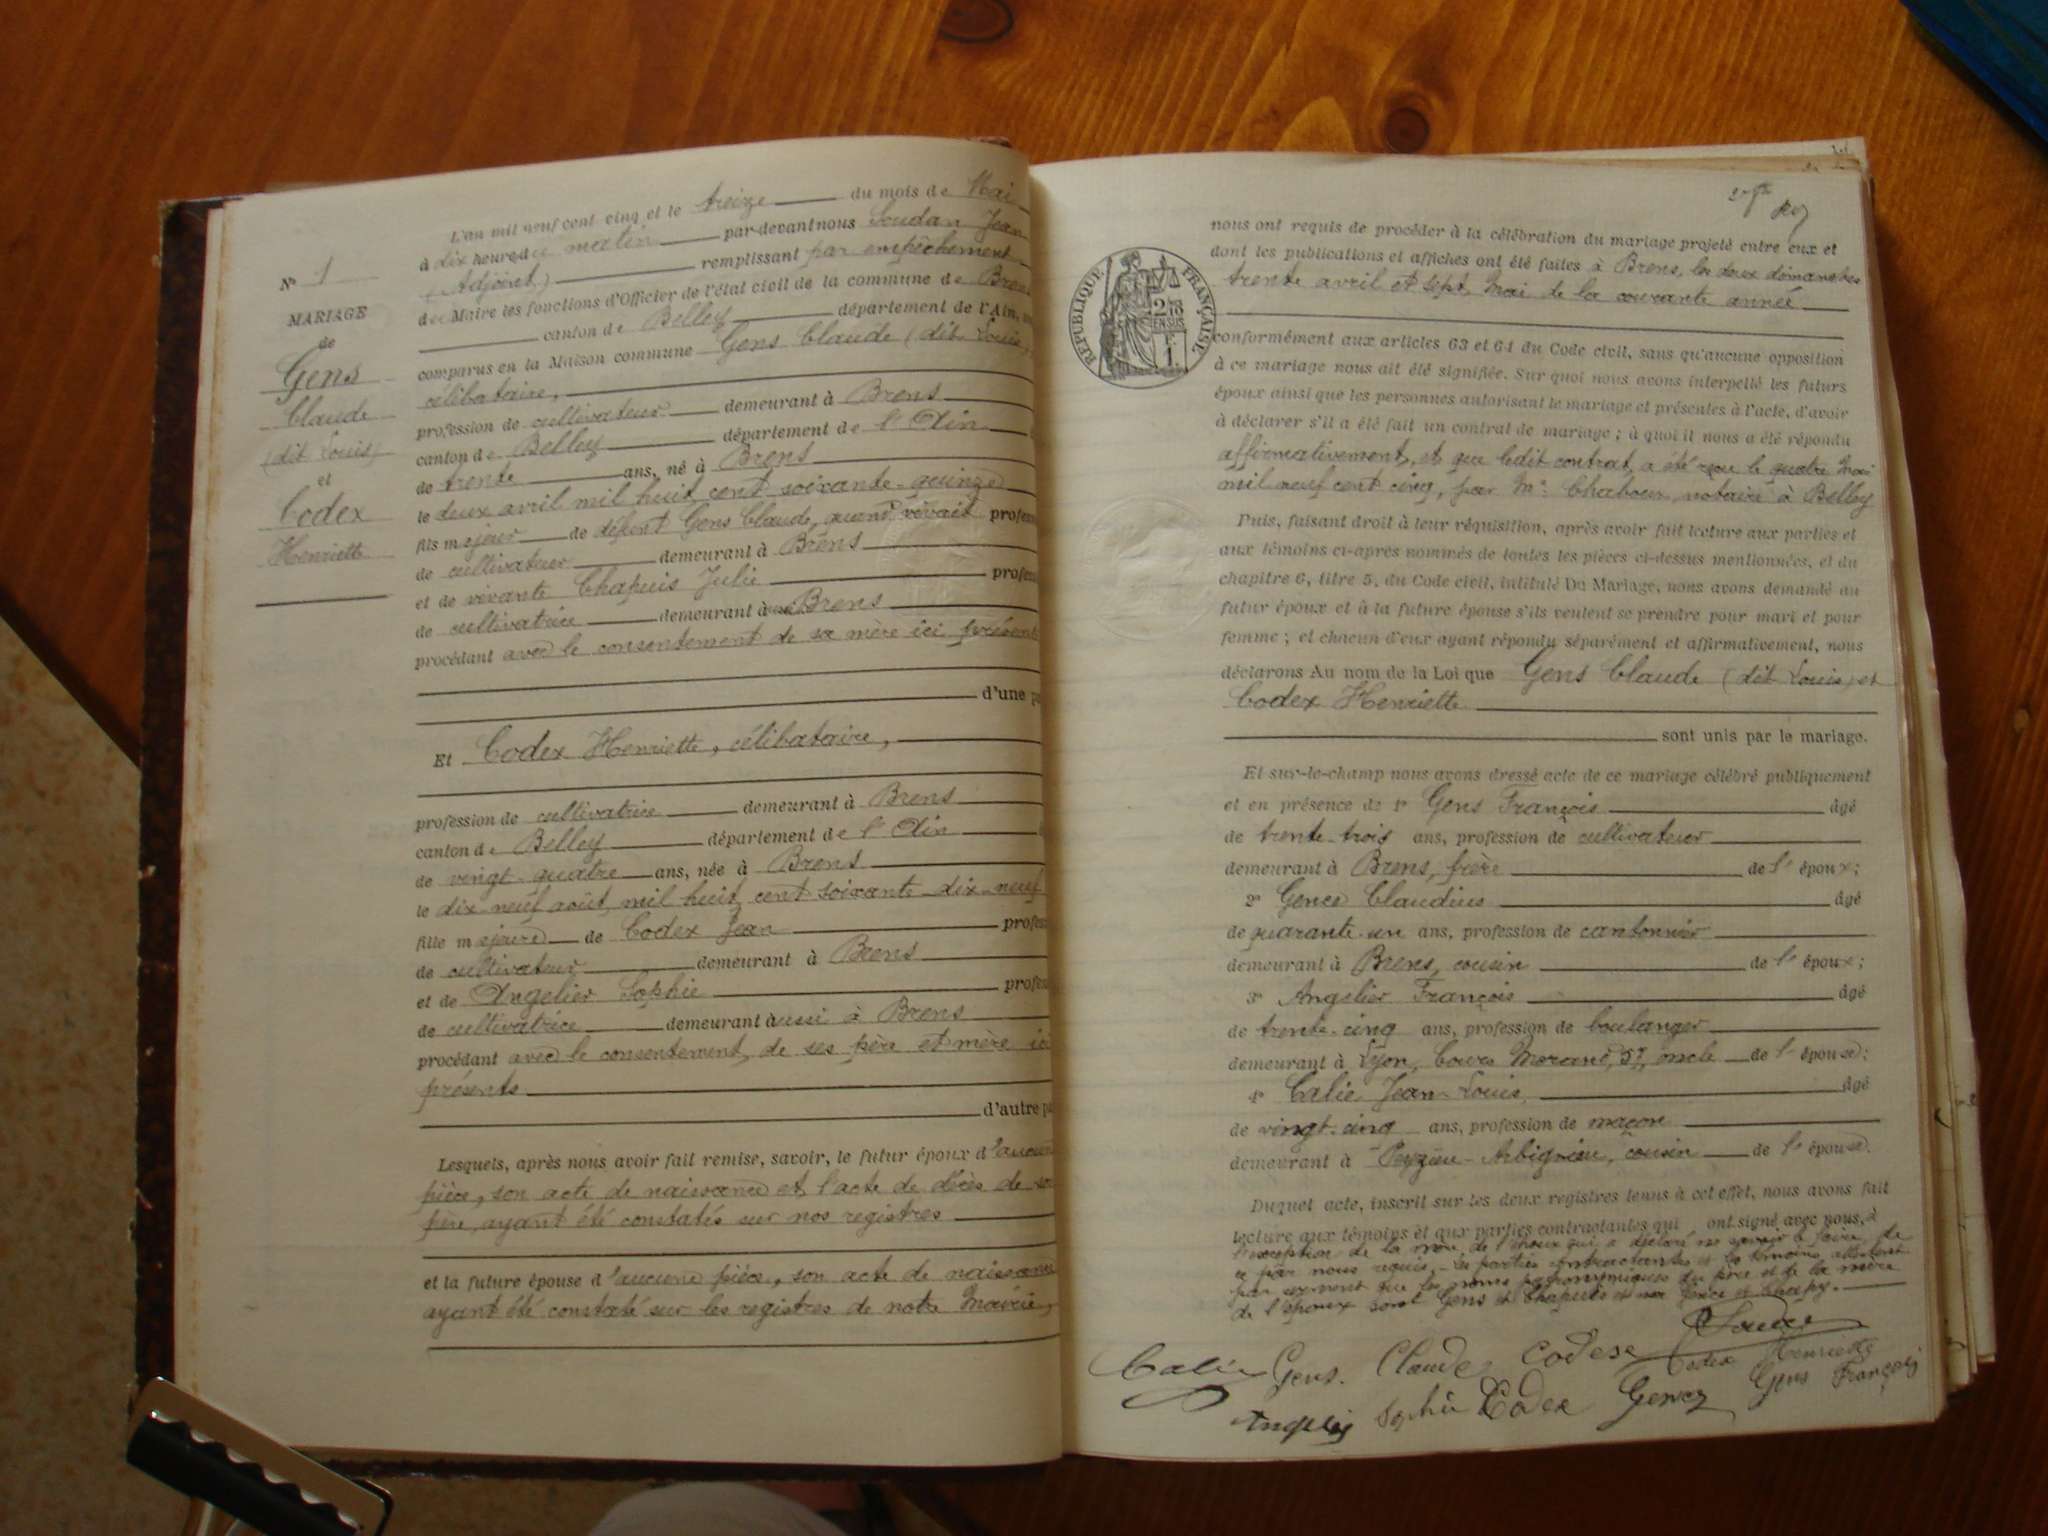 N° 1
MARIAGE
de
Gens
Claude
(dit Louis)
et
Codex
Henriette
L'an mil neuf cent cinq et le treize du mois de Mai
à dix heures du matin par-devant nous Soudan Jean
(Adjoint) remplissant par empêchement
du Maire les fonctions d'Officier de l'état civil de la commune de Brens
canton de Belley département de l'Ain,
comparus en la Maison commune Gens Claude (dit Louis)
célibataire,
profession de cultivateur demeurant à Brens
canton de Belley département de l'Ain
de trente ans, né à Brens
le deux avril mil huit cent soixante-quinze
fils majeur de défunt Gens Claude, quand vivait profess
de cultivateur demeurant à Brens
et de vivante Chapuis Julie profess
de cultivatrice demeurant à Brens
procédant avec le consentement de sa mère ici présente
d'une pa
Et Codex Henriette, célibataire,
profession de cultivatrice demeurant à Brens
canton de Belley département de l'Ain
de vingt-quatre ans, née à Brens
le dix-neuf août mil huit cent soixante-dix-neuf
fille majeure de Codex Jean profess
de cultivateur demeurant à Brens
et de Angelier Sophie profess
de cultivatrice demeurant aussi à Brens
procédant avec le consentement de ses père et mère ici
présents
d'autre pa
Lesquels, après nous avoir fait remise, savoir, le futur époux d'aucune
pièce, son acte de naissance et l'acte de décès de son
père, ayant été constatés sur nos registres
et la future épouse d'aucune pièce, son acte de naissance
ayant été constaté sur les registres de notre Mairie,
RÉPUBLIQUE FRANÇAISE
nous ont requis de procéder à la célébration du mariage projeté entre eux et
dont les publications et affiches ont été faites à Brens, les deux dimanches
trente avril et sept Mai de la courante année
conformément aux articles 63 et 64 du Code civil, sans qu'aucune opposition
à ce mariage nous ait été signifiée. Sur quoi nous avons interpellé les futurs
époux ainsi que les personnes autorisant le mariage et présentes à l'acte, d'avoir
à déclarer s'il a été fait un contrat de mariage ; à quoi il nous a été répondu
affirmativement, et que ledit contrat a été reçu le quatre Mai
mil neuf cent cinq, par Me Chaboux, notaire à Belley
Puis, faisant droit à leur réquisition, après avoir fait lecture aux parties et
aux témoins ci-après nommés de toutes les pièces ci-dessus mentionnées, et du
chapitre 6, titre 5, du Code civil, intitulé Du Mariage, nous avons demandé au
futur époux et à la future épouse s'ils veulent se prendre pour mari et pour
femme ; et chacun d'eux ayant répondu séparément et affirmativement, nous
déclarons Au nom de la Loi que Gens Claude (dit Louis) et
Codex Henriette
sont unis par le mariage.
Et sur-le-champ nous avons dressé acte de ce mariage célébré publiquement
et en présence de 1° Gens François âgé
de trente-trois ans, profession de cultivateur
demeurant à Brens, frère de l'époux ;
2° Gence Claudius âgé
de quarante-un ans, profession de cantonnier
demeurant à Brens, cousin de l'époux ;
3° Angelier François âgé
de trente-cinq ans, profession de boulanger
demeurant à Lyon, Cours Morand, 57, oncle de l'épouse ;
4° Calie Jean-Louis, âgé
de vingt-cinq ans, profession de maçon
demeurant à Peyzieu-Arbignieu, cousin de l'épouse.
Duquel acte, inscrit sur les deux registres tenus à cet effet, nous avons fait
lecture aux témoins et aux parties contractantes qui ont signé avec nous, à
l'exception de la mère de l'époux qui a déclaré ne savoir le faire, de
ce par nous requis. Les parties contractantes et les témoins attestent
par serment que les noms patronymiques du père et de la mère
de l'époux sont Gens et Chapuis et non Gence et Chapuy.
Soudan
Calie Gens Claude Codex Codex Henriette
Angelier Sophie Codex Gence Gens François